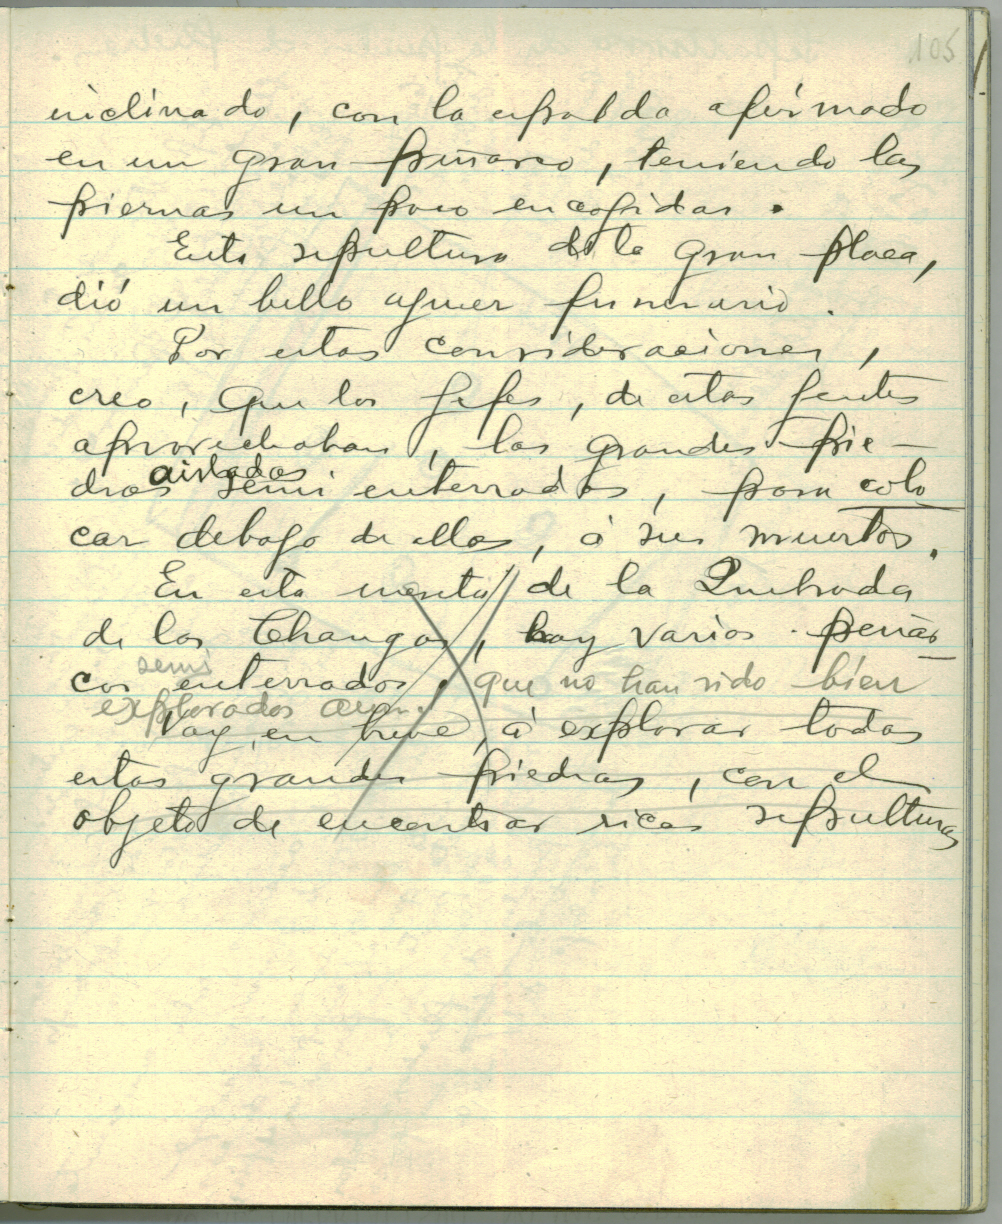 105
inclinado, con la espalda afirmado
en un gran peñasco, teniendo las
piernas un poco encogidas.
Esta sepultura de la gran placa,
dió un bello ajuar funerario.
Por estas consideraciones,
creo, que los jefes, de estas jentes
aprovechaban, las grandes pie-
aisladas
dras semi enterradas, para colo
car debajo de ellas, á sus muertos.
En esta meseta de la Quebrada
de los Changos, hay varios peñas
semi
cos enterrados, que no han sido bien
explorados aun.
Voy, en breve, á explorar todas
estas grandes piedras, con el
objeto de encontrar ricas sepulturas